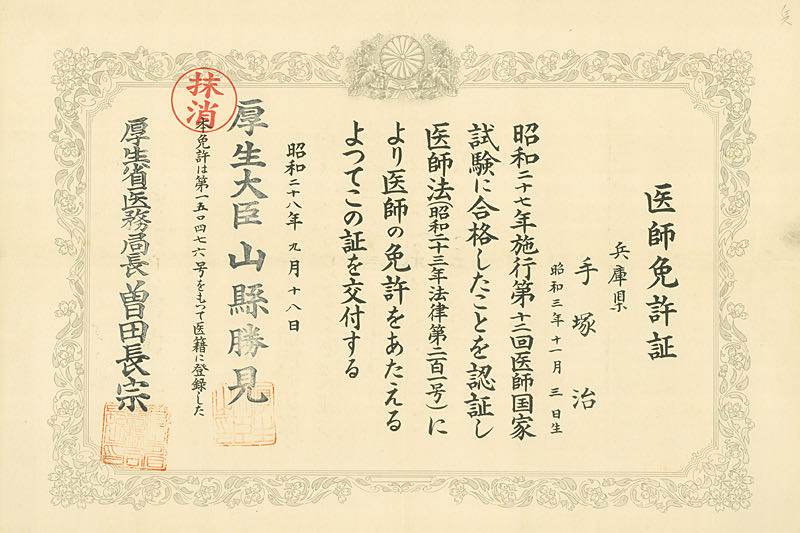 医師免許証
兵庫県
手塚治
昭和三年十一月三日生
昭和二十七年施行第十三回医師国家
試験に合格したことを認証し
医師法(昭和二十三年法律第二百一号)に
より医師の免許をあたえる
よつてこの証を交付する
昭和二十八年九月十八日
厚生大臣山縣勝見
本免許は第一五〇四七六号をもつて医籍に登録した
抹消
厚生省医務局長曽田長宗